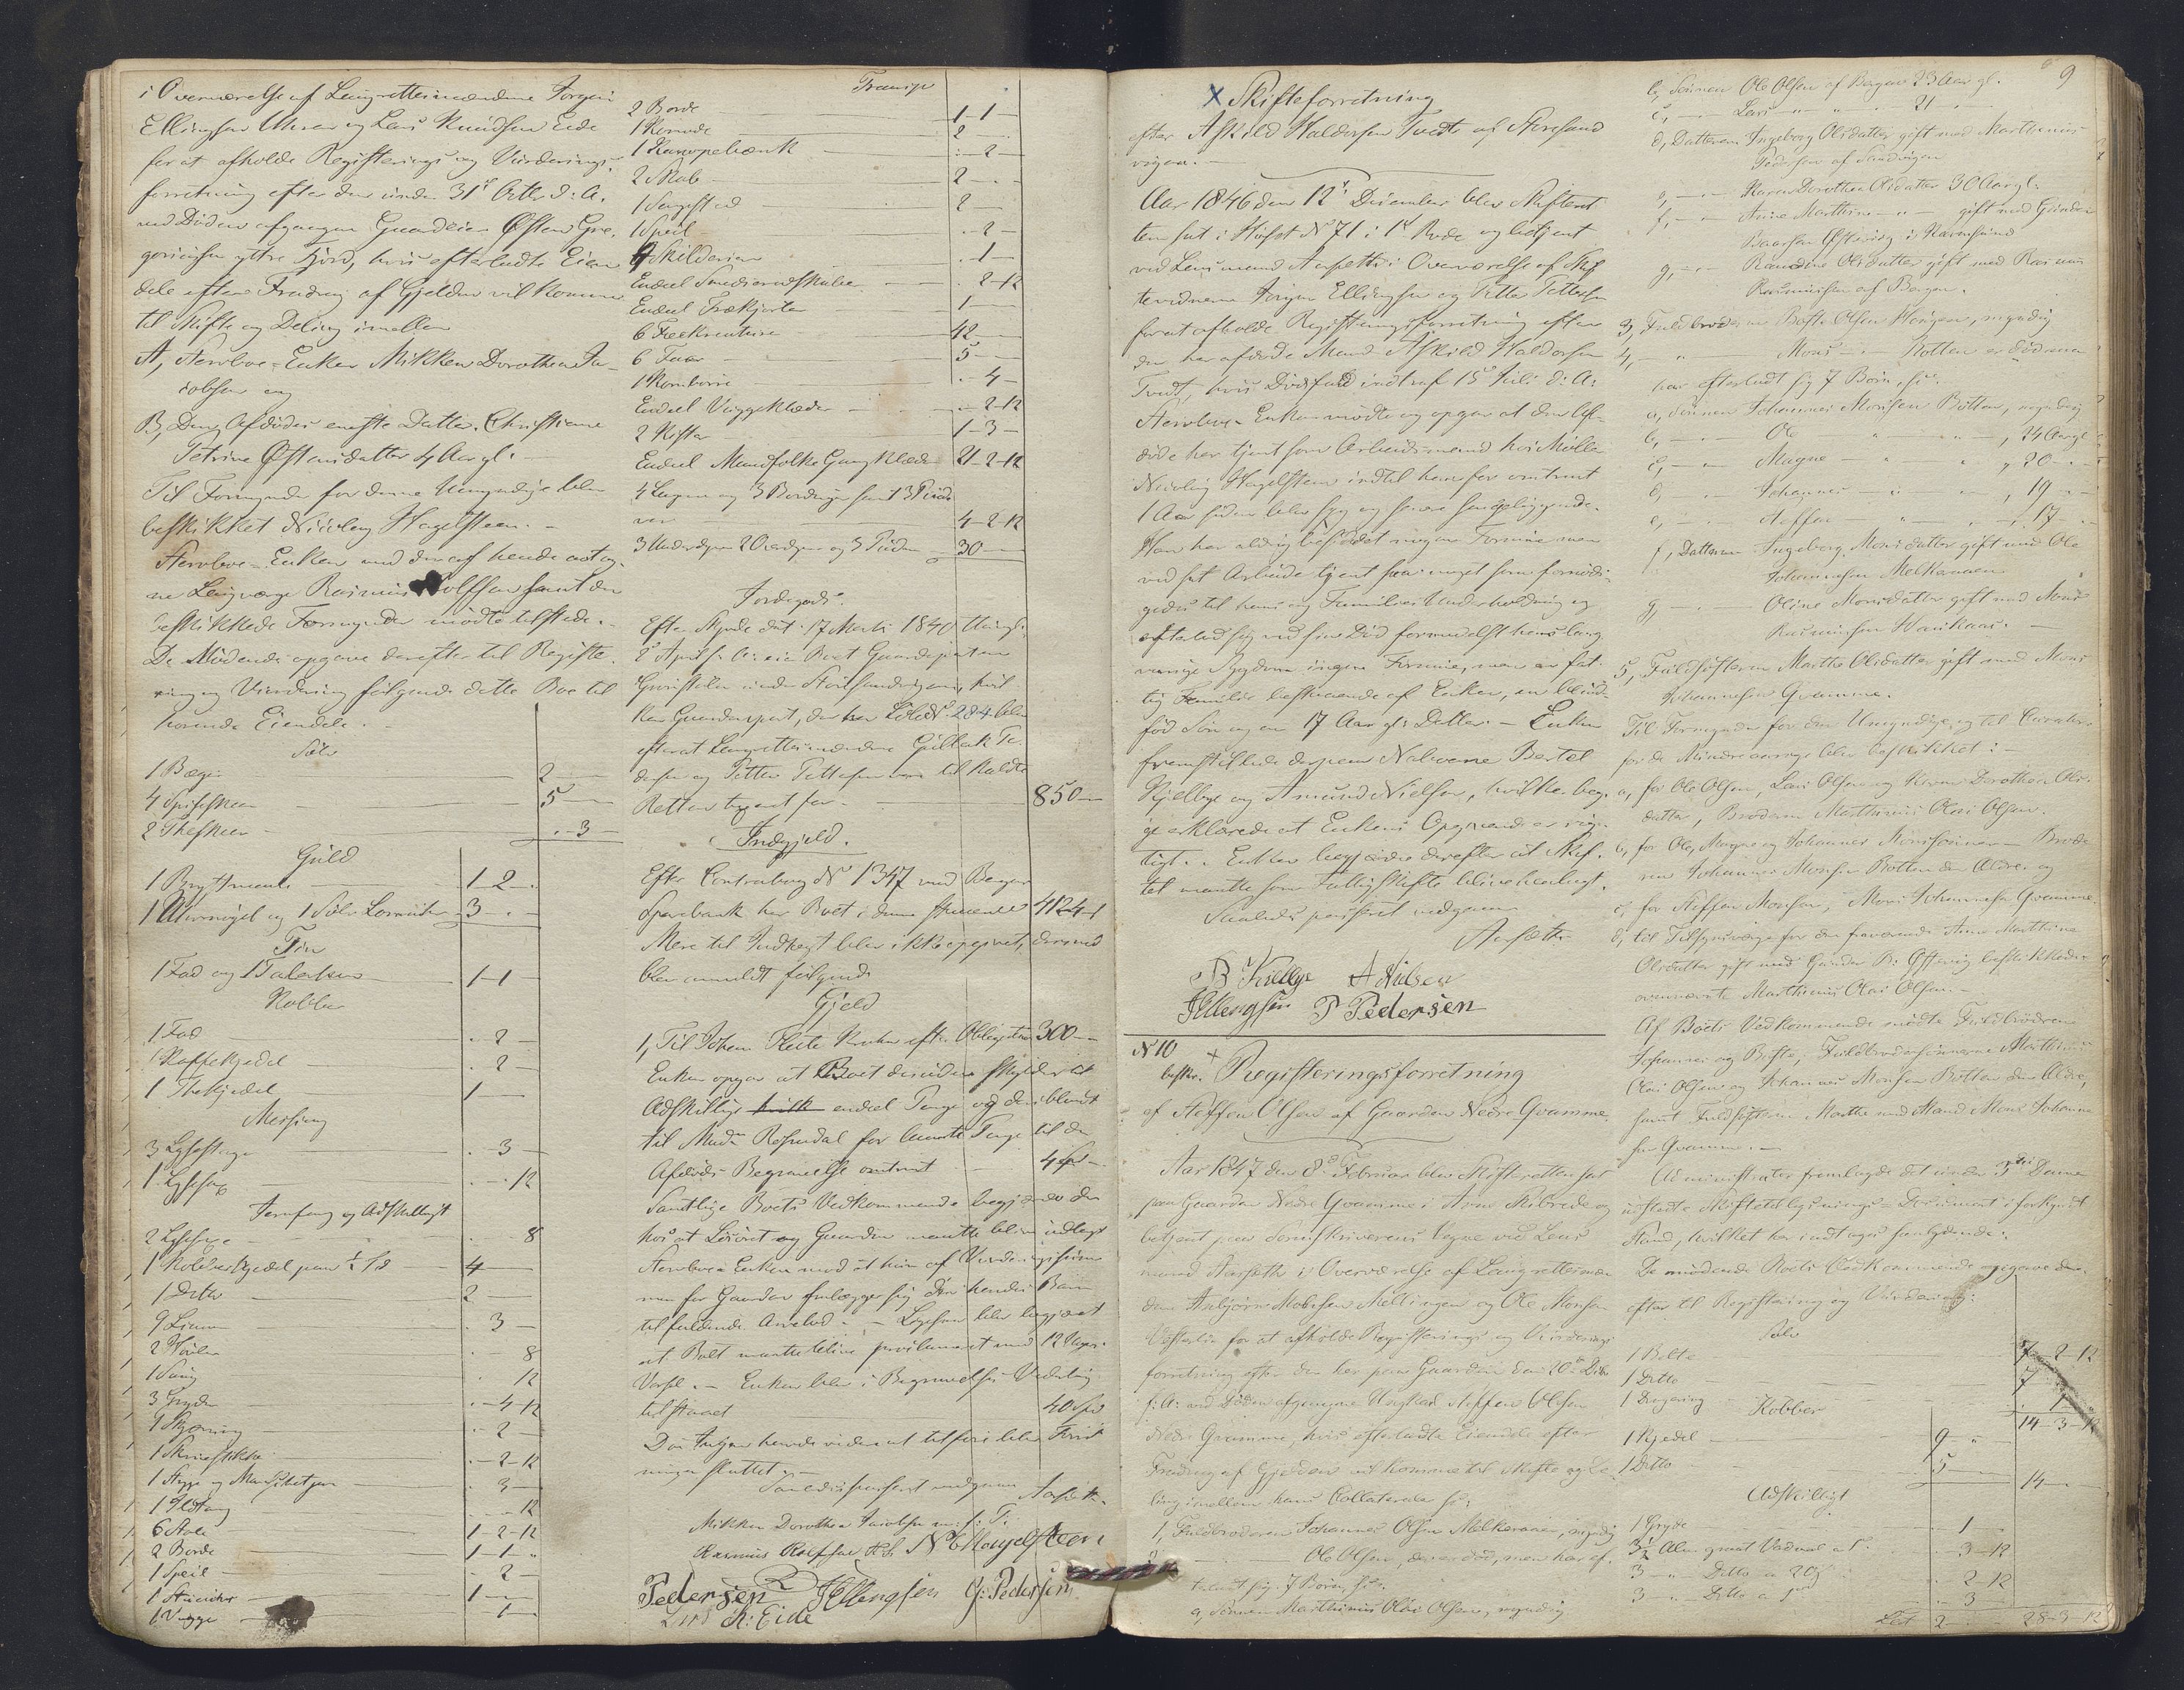 i Overværelse af Laugrettesmændene Jørgen
Ellingsen Uhran og Lars Knudsen Eide
for at afholde Registerings og Vurderings-
forretning efter den under 31te Octbr d: A:
ved Døden afgangne Gaardeier Østen Gre-
goriusen yttre Fjord, hvis efterladte Eien-
dele efter Fradrag af Gjelden vil komme
til Skifte og Deling imellem
A, Stervboe-Enken Mikken Dorothea Ja-
cobsen og
B, Den Afdødes eneste Datter Christiane
Petrine Østensdatter 4 Aar gl. -
Til Formynder for denne Umyndige blev
beskikket Nicolay Hagelsteen. -
Stervboe-Enken med den af hende antag-
ne Laugværge Rasmus Rolfsen samt den
beskikkede Formynder mødte tilstede. -
De Mødende opgave derefter til Registe-
ring og Vurdering følgende dette Boe til
hørende Eiendele. -
Sølv
1 Bæger 2 -
4 Spiseskeer 5 -
2 Theskeer . - 3 -
Guld
1 Brystmaale 1-2-.
1 Uhrnøgel og 1 Sølv 3-.-
Tin
1 Fad og 1 Talerken 1-1
Kobber
1 Fad . 2 -
1 Kaffekjedel . 2 -
1 Thekjedel 1 -
Messing
3 Lysestager . 3 -
1 Lysesax . - . 12
Jernfang og Adskilligt
2 Lysesaxe . - 8
1 Kobberkjedel paa ½ Td 4 -
1 Ditto 2 -
9 Liner . 3 -
2 Høvler . - 8
1 Saug . 12
3 Gryder . - 4 - 12
1 . - 2 -
1 . - 2 - 12
1 3 -
1 Ildtang . - 12
6 Stole 1-2-12
2 Borde 1-1-.
1 Speil . 2 -
1 1 -
1 Vugge . 1 -
Transp
2 Borde 1-1-
1 Komode 2 -
1 Kanapebænk . - 2 -
2 Skabe 2 - . -
1 Sengested 2 -
1 Speil . - 2 -
9 Skilderier . - 1 -
Endeel Smedieredskaber . 2-12
Endeel Trækjerler 1 -
6 Feekreature 42 -
6 Faar 5 -
1 . - 4 -
Endeel Væggeklæder . - 2-12
2 Kister 1-3-
Endeel Mandfolke Gangklæder 21-2-12
4 Lagner og 3 Bordduger samt 3 Pude-
var 4-2-12
3 Underdyner 2 Overdyner og 3 Puder 30 -
Jordegods.
Efter Skjøde dat: 17 Marts 1840 thingl:
2 April s: A: eier Boet Gaardeparten
under Stoksundvigen, hvil-
ken Gaardepart, der har Løbe No 284 blev
efterat Laugrettesmændene Gulleik Pe-
dersen og Petter Pettersen vare tilkaldte
Retten taxeret for - 850 -
Indgjeld.
Efter Contrabog No 1347 med Bergens
Sparebank har Boet i denne staaende 412-4-1
Mere til Indtægt blev ikke opgivet, derimod
blev anmeldt følgende
Gjeld
1, Til Johan Krohn efter Obligation 300 -
Enken opgav at Boet desuden skylder til
Adskillige endeel Penge og deriblandt
til Mads Rosendal for laante Penge til den
Afdødes Begravelse omtrent - 4 Spd -
Samtlige Boets Vedkommende begjærede der
hos at Løsøret og Gaarden maatte blive udlagt
Stervboe Enken mod at hun af Vurderingssum-
men for Gaarden forlægger sig den hendes Barn
tilfaldende Arvelod. - Ligesom blev begjæret
at Boet maatte blive proclameret med 12 Ugers
Varsel. - Enken blev i Begravelses Vederlag
tilstaaet 40 Spd
Da Ingen havde videre at tilføie blev Forret-
ningen sluttet. -
Saaledes passeret vidgaaes Aarsæth.
Mikken Dorothea Jacobsen m: f: P:
Rasmus Rolfsen N C Hagelsteen
Pedersen JEllengsen G: Pedersen
Lars K: Eide
9
x Skifteforretning
efter Askild Haldorsen Tvedt af
vigen. -
Aar 1846 den 12te December blev Skifteret-
ten sat i Huset No 71 i 1te Rode og betjent
ved Lensmand Aarsæth i Overværelse af Skif
tevidnerne Jørgen Ellingsen og Petter Pettersen
for at afholde Registeringsforretning efter
den her afdøde Mand Askild Haldorsen
Tvedt, hvis Dødsfald indtraf 15de Juli d: A:
Stervboe Enken mødte og opgav at den Af-
døde har tjent som Arbeidsmand hos Møller
Nicolay Hagelsteen indtil han for omtrent
1 Aar siden blev syg og senere sengeliggende.
Han har aldrig besiddet nogen Formue men
ved sit Arbeide tjent saa meget som fornødi-
gedes til hans og Families Underholdning og
efterlod sig ved sin Død formedelst hans lang
varige Sygdom ingen Formue, men en fat-
tig Familie bestaaende af Enken, en blind
fød Søn og en 17 Aar gl: Datter. - Enken
fremstillede derpaa Naboerne Bertel
Kjellbye og Amund Nielsen, hvilke beg-
ge erklærede at Enkens Opgivende er rig-
tigt. - Enken begjærede derefter at Skif-
tet maatte som Fattigskifte blive henlagt.
Saaledes passeret vidgaaes
Aarsæth
B Kiellbye A Nilsen
JEllengsen P Pedersen
N 10
beskr. x Registeringsforretning
af Steffen Olsen af Gaarden Nedre Qvamme.
Aar 1847 den 8de Februar blev Skifteretten sat
paa Gaarden Nedre Qvamme i Arne Skibrede og
betjent paa Sorenskriverens Vegne ved Lens
mand Aarsæth i Overværelse af Laugrettesmæn
dene Anbjørn Mellingen og Ole Monsen
for at afholde Registerings og Vurderings
forretning efter den her paa Gaarden den 20de Dcbr
f: A: ved Døden afgangne Ungkarl Steffen Olsen
Nedre Qvamme, hvis efterladte Eiendele efter
Fradrag af Gjelden vil komme til Skifte og De-
ling imellem hans Collaterale sc:
1, Fuldbroderen Johannes Olsen Melkeraaen, myndig
2, - - Ole Olsen, der er død, men har ef-
terladt sig 7 Børn, sc:
a, Sønnen Marthinus Olai Olsen, myndig
b, Sønnen Ole Olsen af Bergen 23 Aar gl.
c, - Lars - - 21 -
d, Datteren Ingeborg Olsdatter gift med Marthinus
Pedersen af Sandvigen
e, - Karen Dorothea Olsdatter 30 Aar gl.
f, - Anne Marthine - gift med Gunder
Baarsen i Karmsund
g, - Olsdatter gift med Rasmus
Rasmussen af Bergen.
3, Fuldbroderen Olsen Haugen, myndig
4, " Mons - Botten er død men
har efterladt sig 7 Børn, sc:
a, Sønnen Johannes Monsen Botten, myndig
b, - Ole " - , 24 Aar gl
c, - Magne - " , 20 -
d, - Johannes - " , 19 -
e, - Steffen - " , 17 -
f, Datteren Ingeborg Monsdatter gift med Ole
Johannesen Melkeraaen
g, - Oline Monsdatter gift med Mons
Rasmussen -
5, Fuldsøsteren Marthe Olsdatter gift med Mons
Johannesen Qvamme.
Til Formynder for den Umyndige og til Curatorer
for de Mindreaarige blev beskikket: -
a, for Ole Olsen, Lars Olsen og Karen Dorothea Ols-
datter, Broderen Marthinus Olai Olsen.
b, for Ole, Magne og Johannes Monssønner - Brode-
ren Johannes Monsen Botten den Ældre. og
c, for Steffen Monsen, Mons Johannesen Qvamme.
d, til Tilsynsværge for den fraværende Anne Marthine
Olsdatter gift med Gunder B: beskikkedes
ovennævnte Marthinus Olai Olsen -
Af Boets Vedkommende mødte Fuldbrødrene
Johannes og Fuldbrodersønnerne Marthinus
Olai Olsen og Johannes Monsen Botten den Ældre,
samt Fuldsøsteren Marthe med Mand Mons Johanne
sen Qvamme. -
Administrator fremlagde det under 3die Dennes
udstedte Skiftetillysnings-Document i forkyndt
Stand, hvilket her indtages saalydende:
De mødende Boets Vedkommende opgave der-
efter til Registering og Vurdering:
Sølv
1 Belte 7-2-12
1 Ditto 7
1 . 1 -
14-3-12
Kobber
1 Kjedel 9 - "
1 Ditto 5 -
14 -
Adskilligt
1 Gryde . 1 -
3½ Alen graat Vadmel . - 3-12
3 - " - Ditto a 20 ß . 2-12
3 - " - Ditto a . 3 -
Lat. 2 - 28-3-12